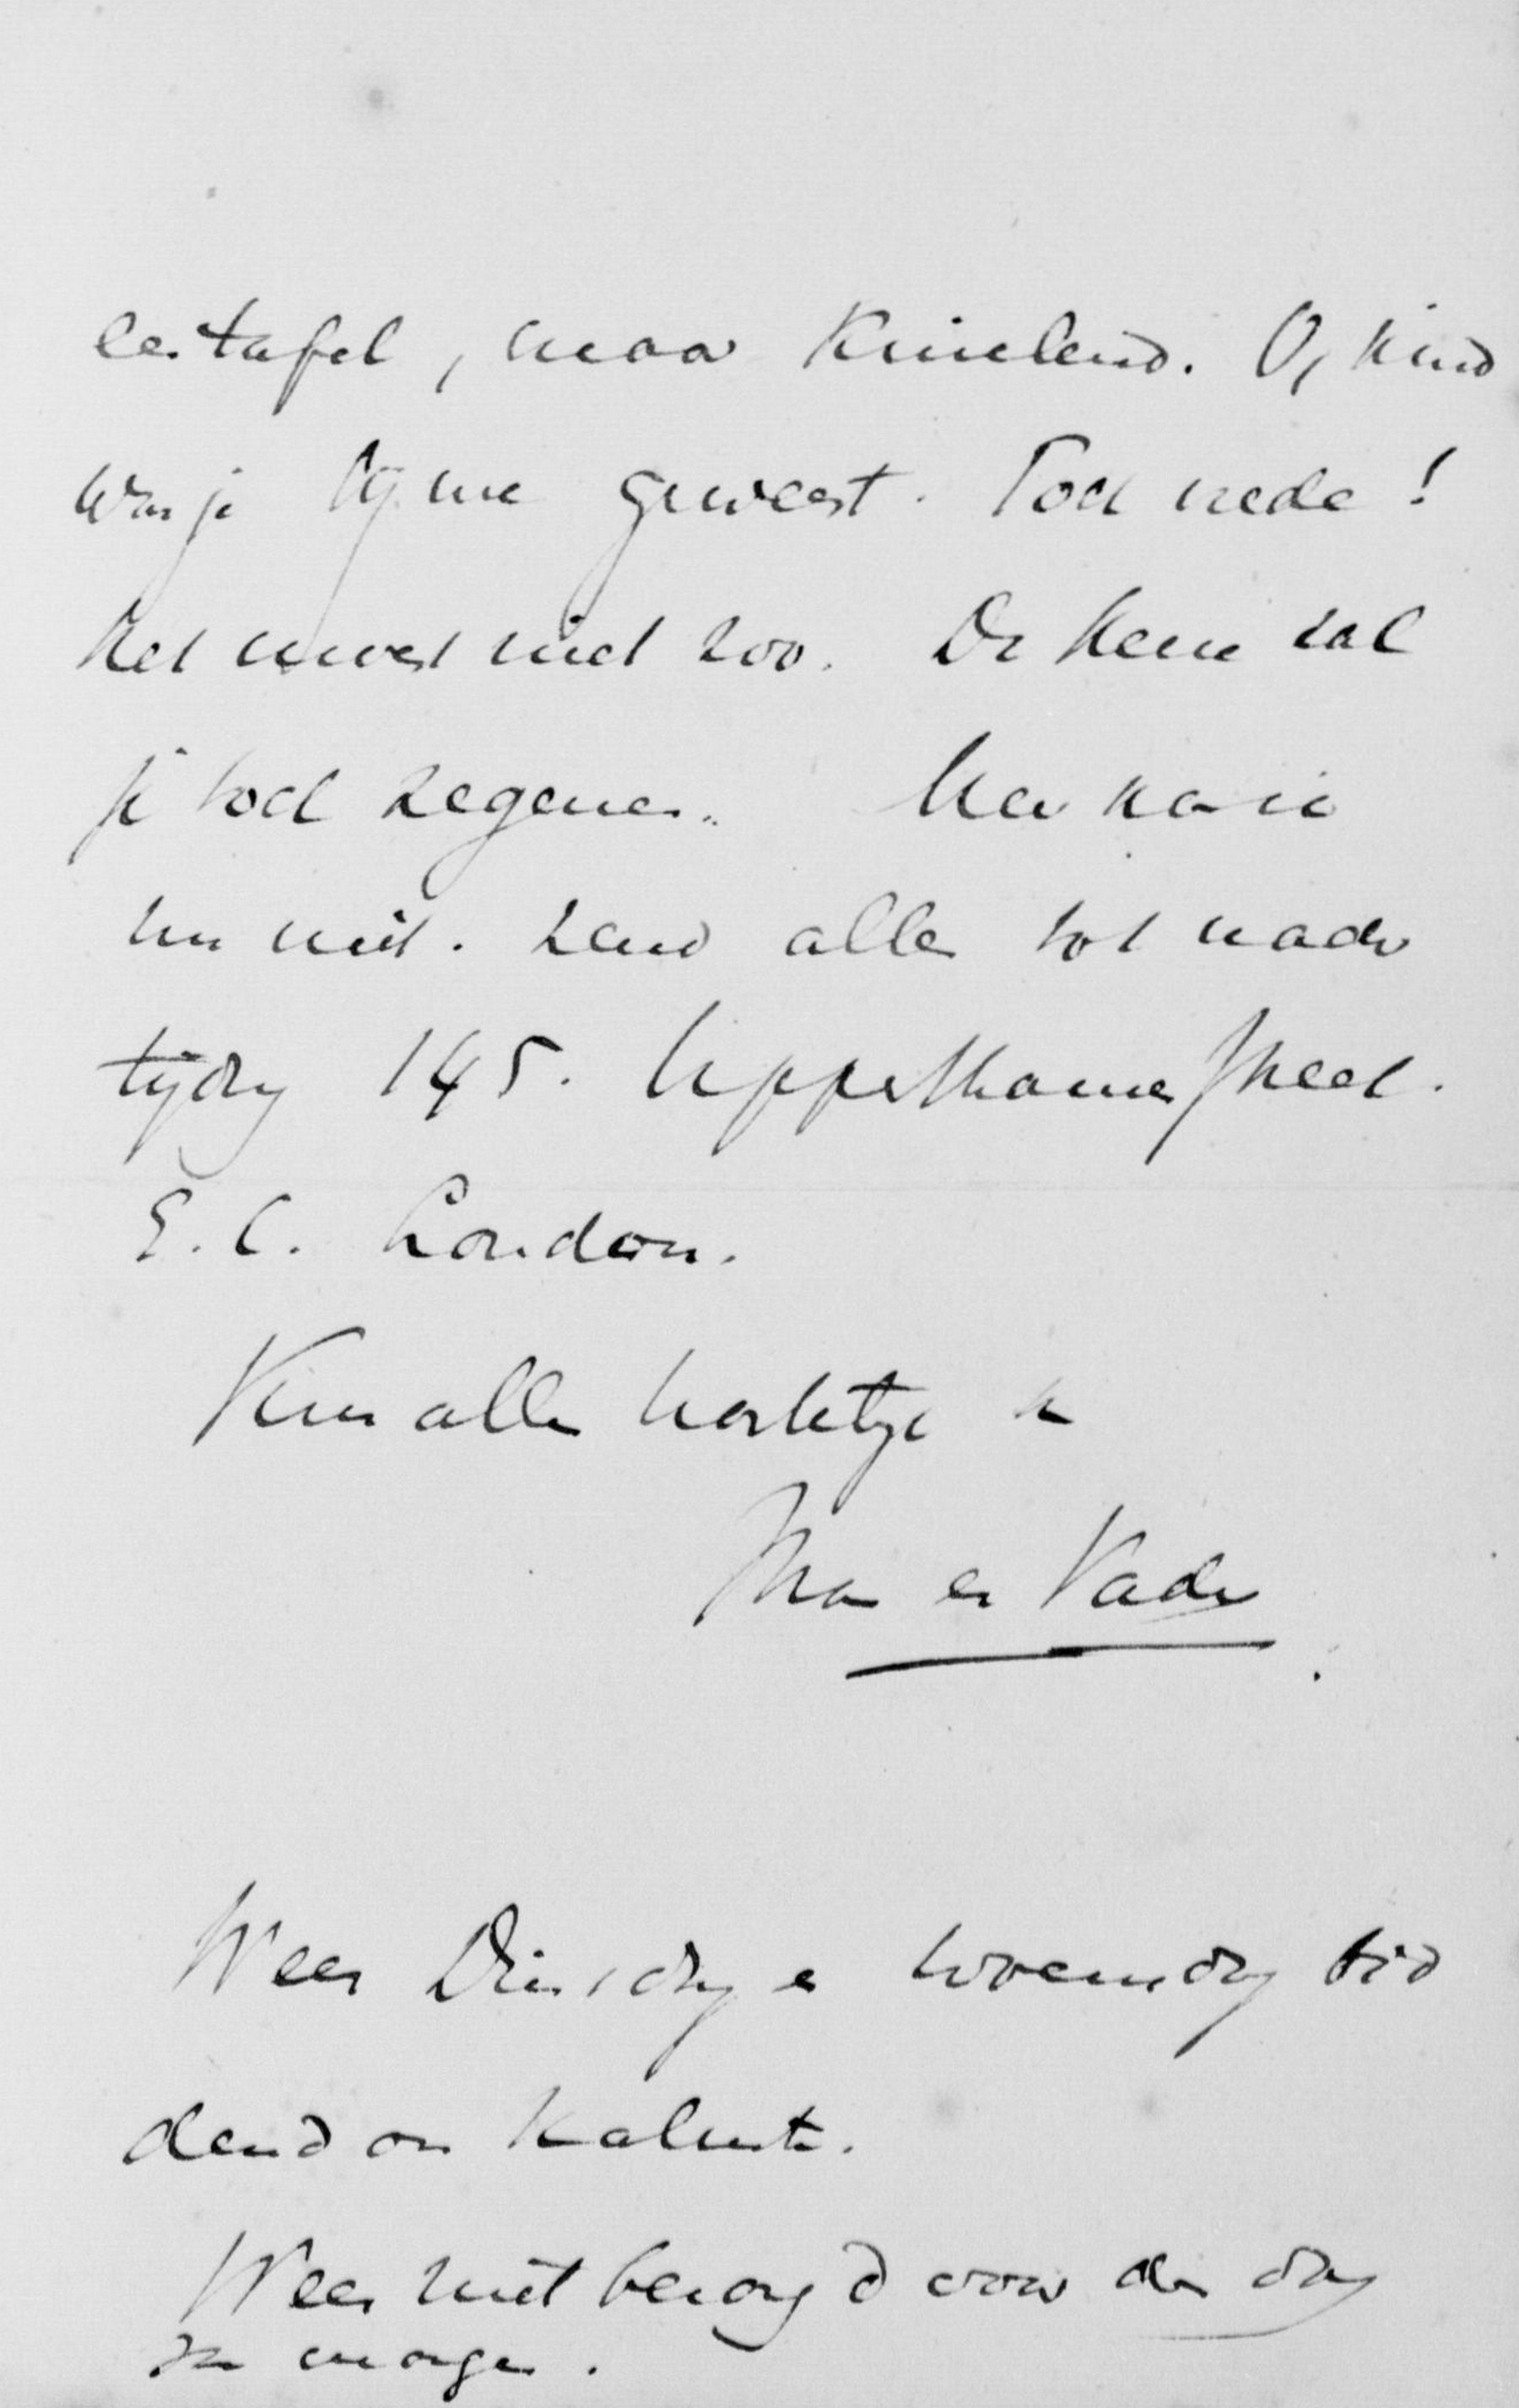 leestafel, maar knielend. O, kind
was je bij me geweest. Toch vrede!
Het moest niet zoo. De Heere zal
je toch zegenen. Meer kan ik
nu niet. Zend alles tot nader
tijding 145. Upper Thames Street.
E.C. London.
Kus alle hartetjes
Man en Vader
Wees Dinsdag en Woensdag bid
dend en kalm.
Wees niet bezorgd voor den dag
van morgen.